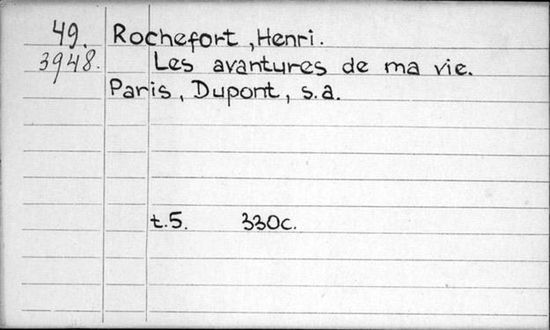 49. Rochefort, Henri.
3948. Les avantures de ma vie.
Paris, Dupont, s.a.
t.5. 330c.